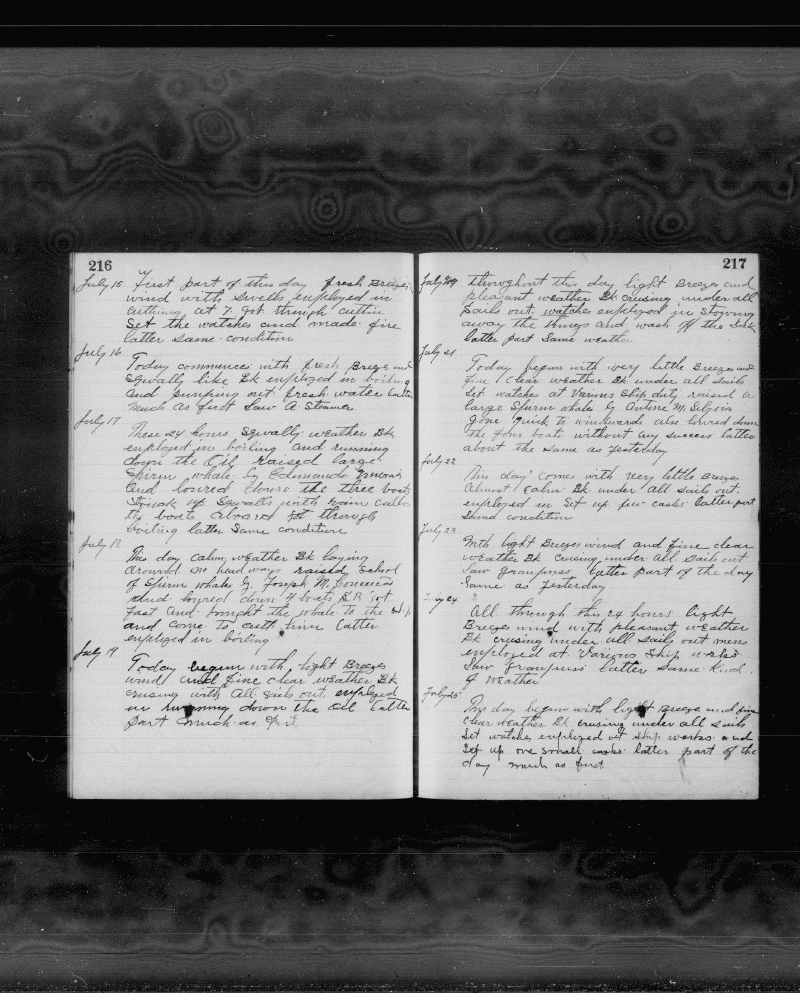 216
July 15 First part of this day fresh Breezes
wind with swells employed in
cutting at 7. got through cuttin
Set the watches and made fire
latter same condition
July 16
Today commences with fresh Breeze and
Sqwally like Bk employed in boiling
and pumping out fresh water latter
much as first Saw A Steamer
July 17
These 24 hours Sqwally weather Bk
employed in boiling and running
down the Oil raised large
Spirm whale by Edmund
and lowred down the three boats
Struck up Sqwalls with rain
the boats aboard got through
boiling latter Same condition
July 18
This day calm weather Bk laying
around no head ways raised School
of Spurm whales by Joseph M.
and lowred down 4 boats got
fast and brought the whale to the ship
and come to cutt him latter
employed in boiling
July 19
Today begun with light Breezes
wind and fine clear weather Bk
crusing with all sails out employed
in running down the Oil latter
part much as
217
July throughout this day light Breeze and
pleasant weather Bk crusing under all
Sails out watches employed in Stowing
away the things and wash off the Deck
latter part Same weather
July 21
Today begun with very little Breezes and
fine clear weather Bk under all sails
Set watches at Varius Ship duty raised a
large Spurm whales by Antone M.
gone quick to windwards also lowred down
the four boats without any success latter
about the same as yesterday
July 22
This day comes with very little Breezes
Almost calm Bk under all sails out
employed in Set up few casks latter part
Same condition
July 23
With light Breezes wind and fine clear
weather Bk crusing under all Sails out
Saw grampuss latter part of the day
Same as yesterday
July 24
All through this 24 hours light
Breezes wind with pleasant weather
Bk crusing under all sails out mens
employed at Varius Ship works
Saw grampuss latter Same Kind
of weather
July 25
This day begun with light Breeze and fine
clear weather Bk crusing under all sails
Set watches employed at Ship works and
Set up one small casks latter part of the
day much as first